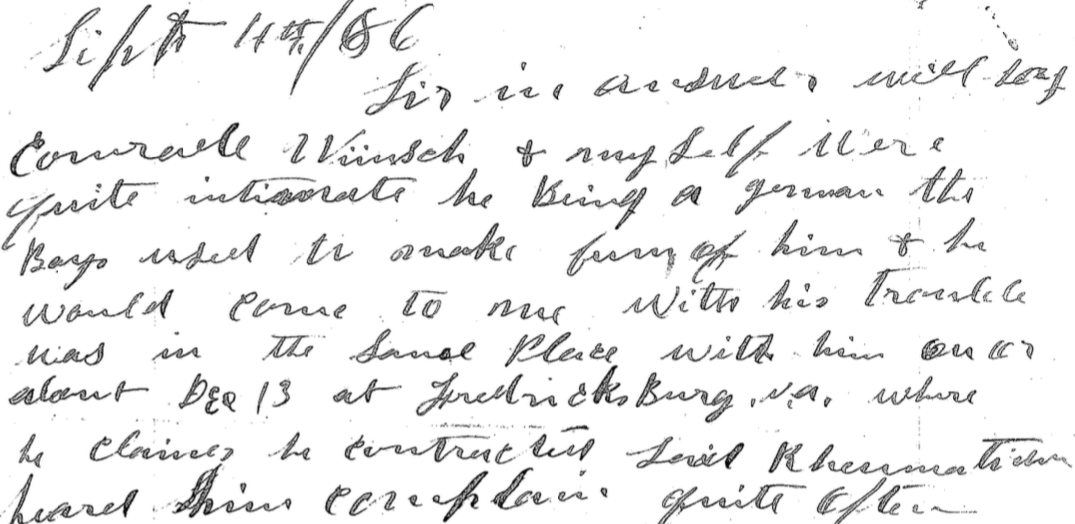 Sept 4th/86
Sir in answer will say
Comrade Wünsch & myself Were
quite intimate he Being a german the
Boys used to make fun of him & he
would come to me With his Trouble
was in the Same Place with him on or
about Dec 13 at FredricksBurg, va, where
he claimes he contracted said Rheumatism
heard him complain quite often